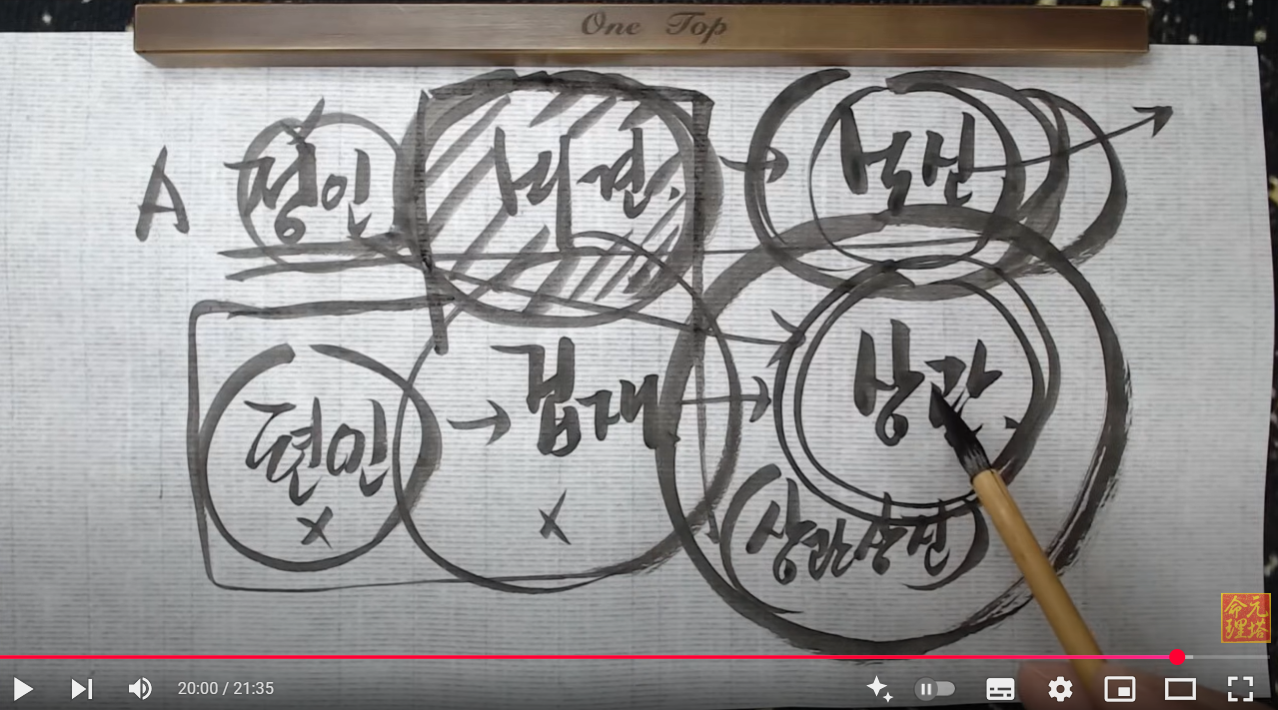 One Top
A 정인 비견 식신
편인 → 겁재 상관
× ×
상관상진
命元
理塔
20:00 / 21:35